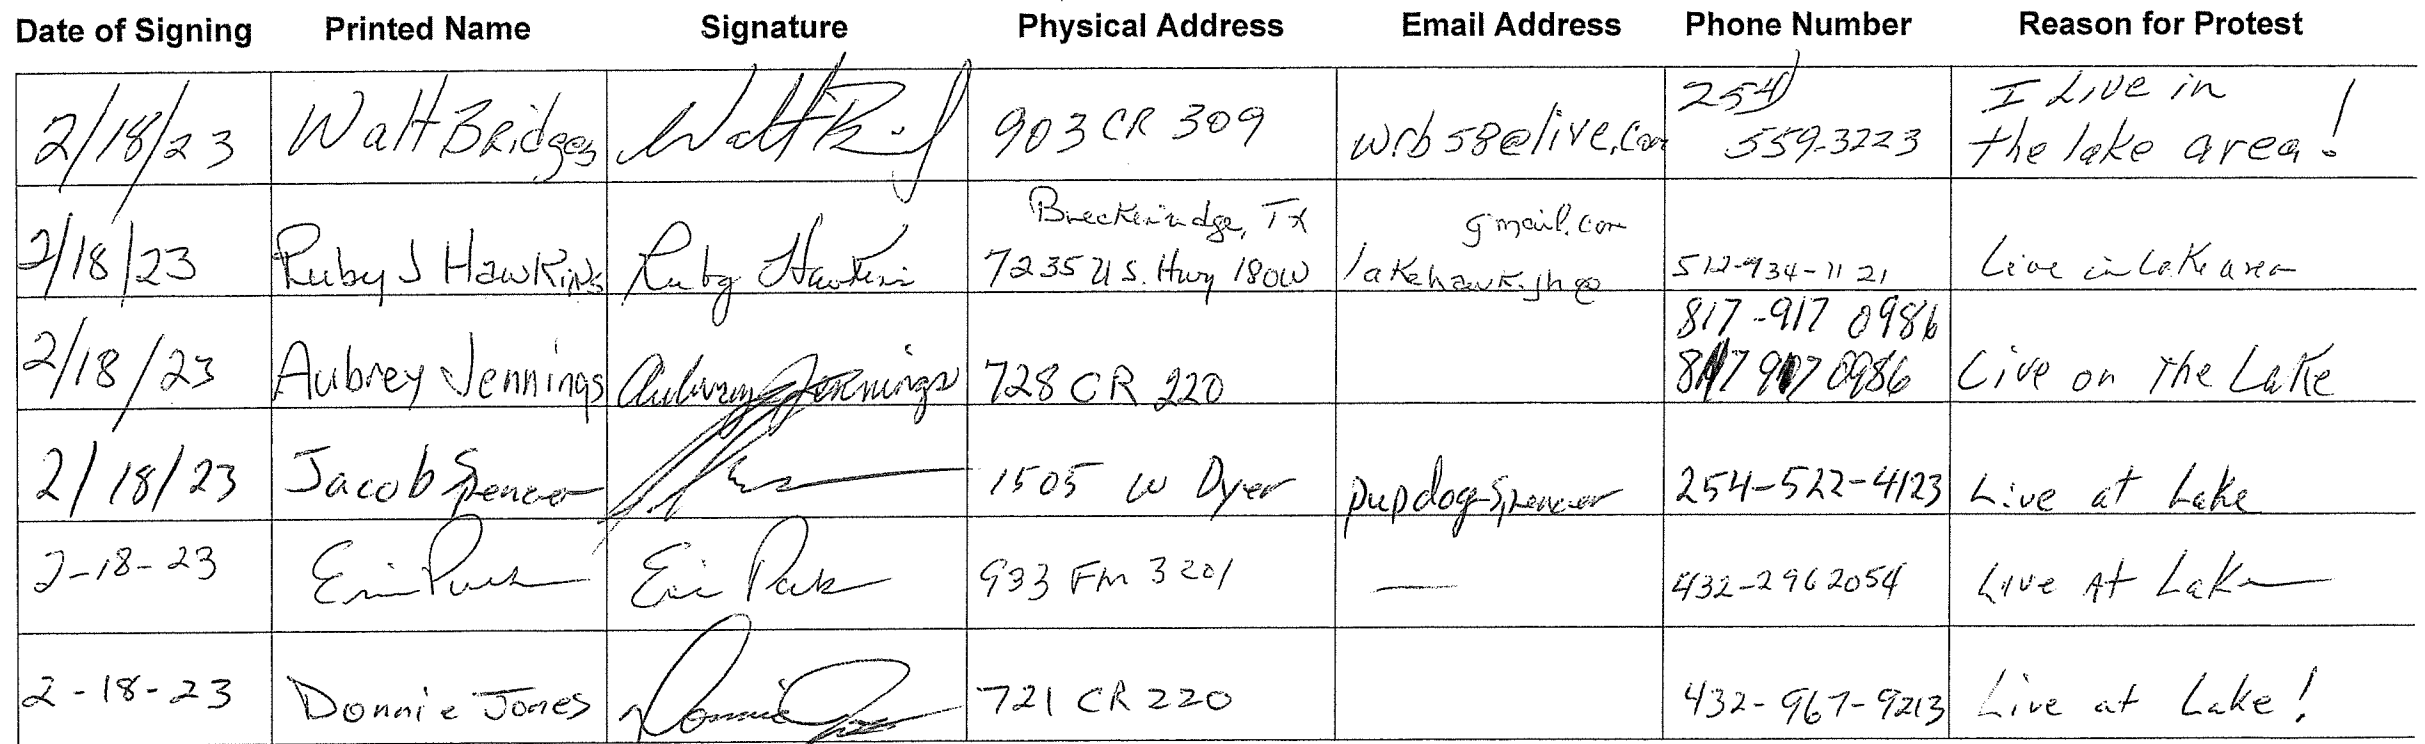 Date of Signing Printed Name Signature Physical Address Email Address Phone Number Reason for Protest
2/18/23 Walt Bridges Walt 903 CR 309 wrb58@live.com 254) 559-3223 I Live in the lake area!
2/18/23 Ruby J Hawkins Ruby Hawkins Breckenridge, Tx 7235 U.S. Hwy 180W lakehawk.jh@ gmail.com 512-934-1121 Live in Lake area
817-917 0986
2/18/23 Aubrey Jennings Aubrey Jennings 728 CR 220 817 917 0986 Live on The Lake
2/18/23 Jacob Spencer 1505 W Dyer pupdogspencer 254-522-4123 Live at Lake
2-18-23 Eric Park Eric Park 933 FM 3201 — 432-296 2054 Live At Lake
2-18-23 Donnie Jones Donnie Jones 721 CR 220 432-967-9213 Live at Lake!